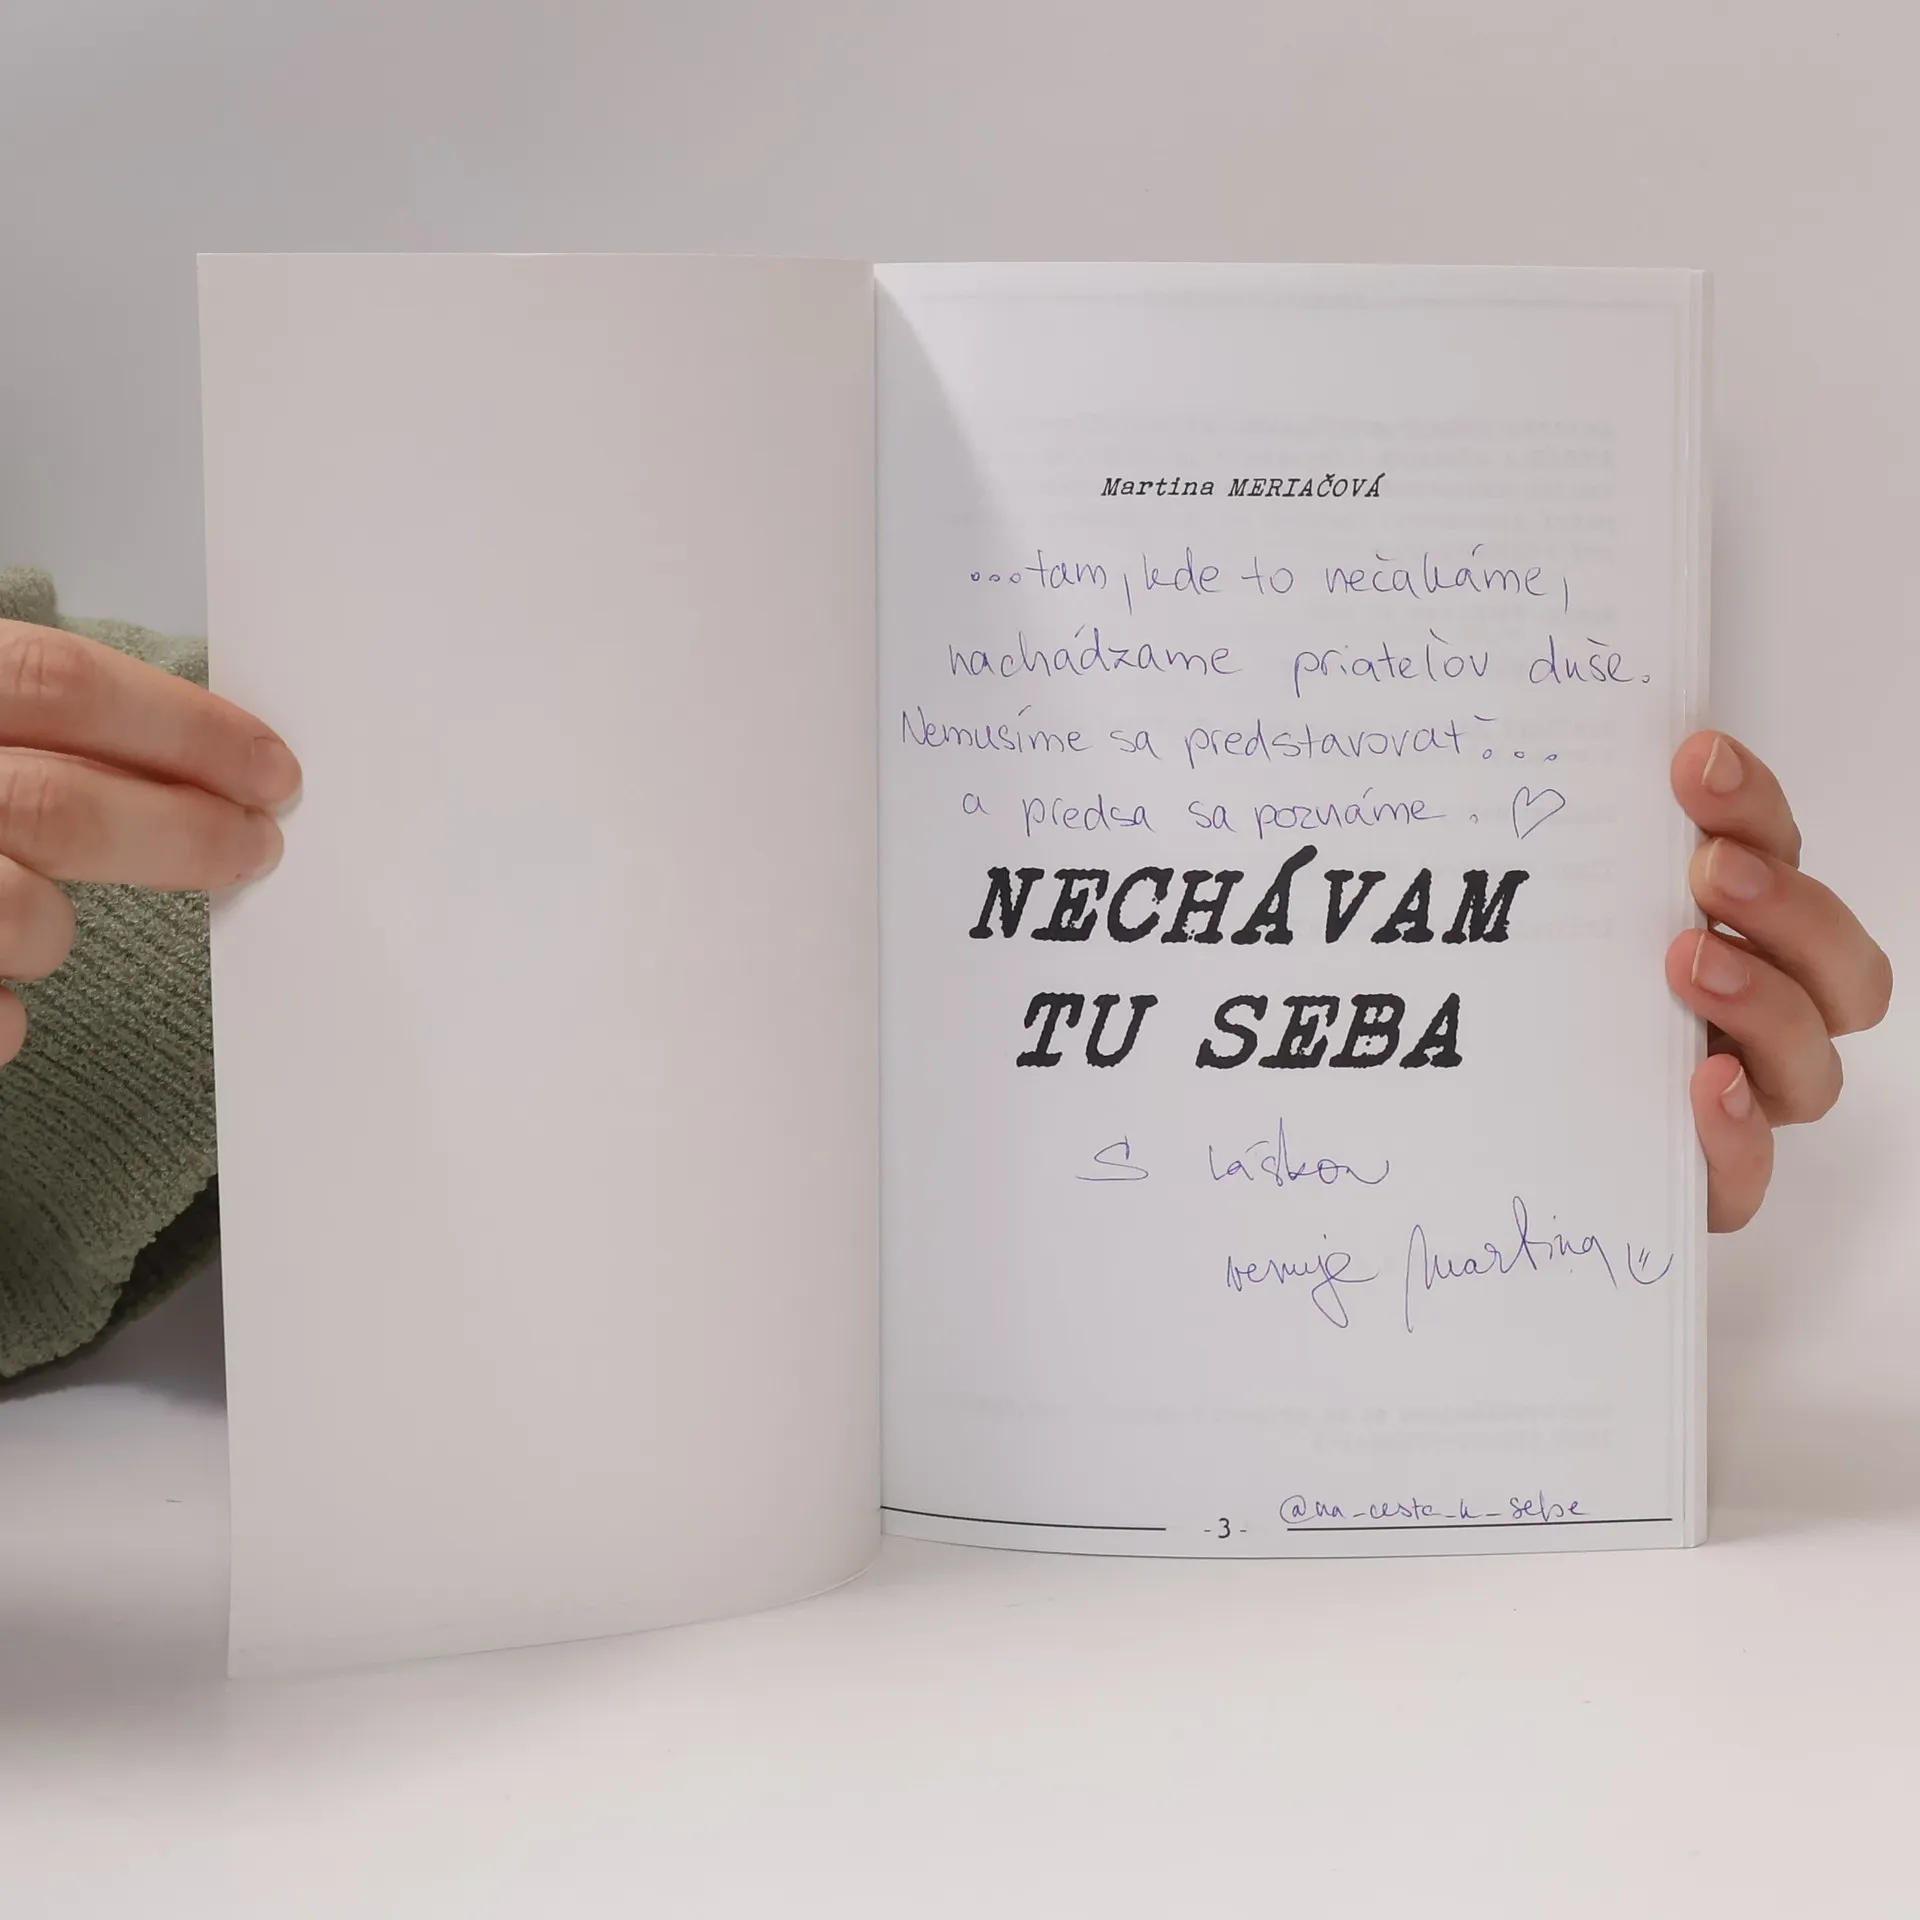 Martina MERIAČOVÁ
...tam, kde to nečakáme,
nachádzame priateľov duše.
Nemusíme sa predstavovať...
a predsa sa poznáme. ♡
NECHÁVAM
TU SEBA
S láskou
venuje Martina
@na_cesta_k_sebe
- 3 -